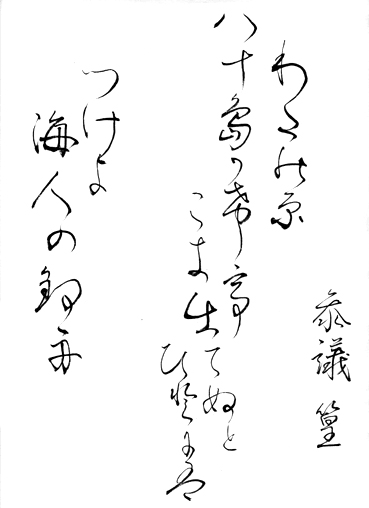 参議篁
わたの原
八十島かけて
こき出てぬと
ひとには
つけよ
海人の釣舟